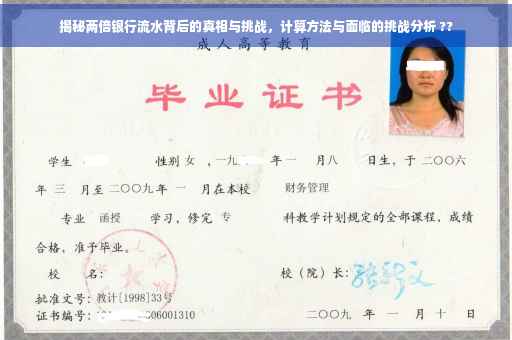 揭秘两倍银行流水背后的真相与挑战，计算方法与面临的挑战分析 ??
成人高等教育
毕业证书
学生 性别 女 ，一九 年 一 月八 日生，于 二〇〇六
年 三 月至 二〇〇九 年 一 月在本校 财务管理
专业 函授 学习，修完 专 科教学计划规定的全部课程，成绩
合格，准予毕业。
校 名： 校（院）长：
批准文号：教计[1998]33号
证书编号： 06001310 二〇〇九 年 一 月 十 日